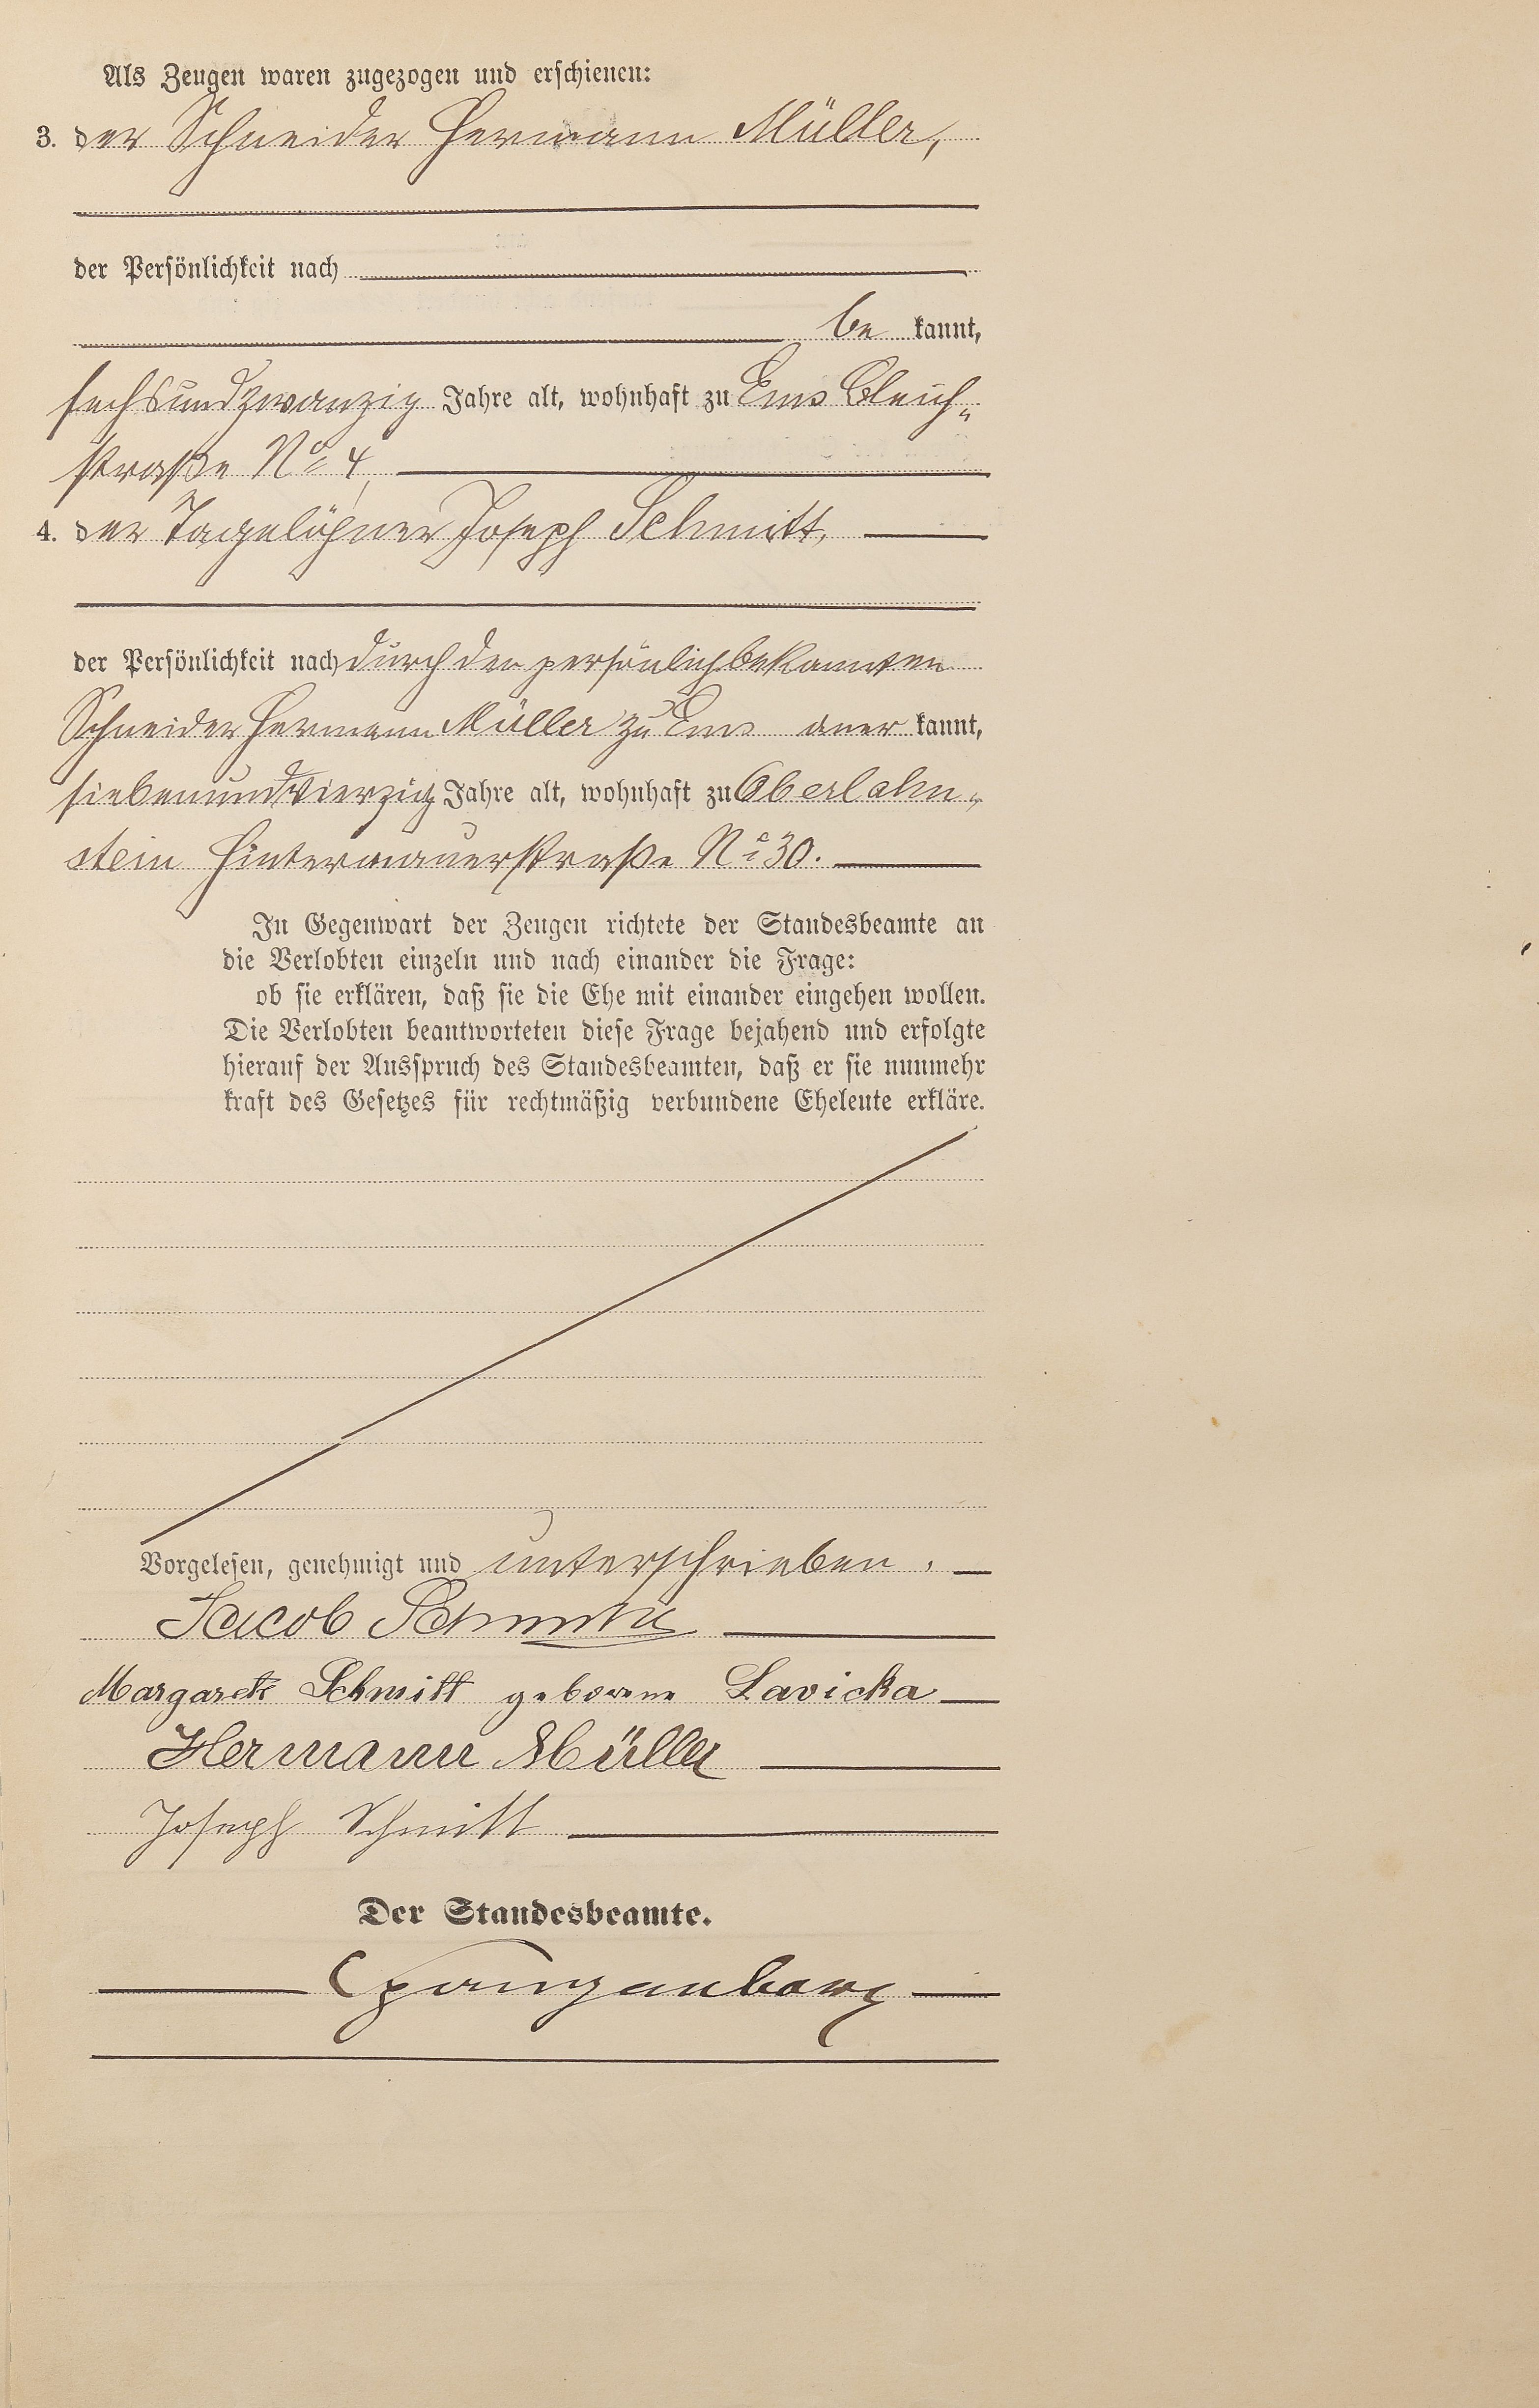 Als Zeugen waren zugezogen und erschienen:
3. der Schneider Hermann Müller,
der Persönlichkeit nach
be kannt,
sechsundzwanzig Jahre alt, wohnhaft zu Ems Bleich-
straße No 4,
4. der Tagelöhner Joseph Schmitt,
der Persönlichkeit nach durch den persönlich bekannten
Schneider Hermann Müller zu Ems aner kannt,
siebenundvierzig Jahre alt, wohnhaft zu Oberlahn-
stein Hintermauerstraße No 30.
In Gegenwart der Zeugen richtete der Standesbeamte an
die Verlobten einzeln und nach einander die Frage:
ob sie erklären, daß sie die Ehe mit einander eingehen wollen.
Die Verlobten beantworteten diese Frage bejahend und erfolgte
hierauf der Ausspruch des Standesbeamten, daß er sie nunmehr
kraft des Gesetzes für rechtmäßig verbundene Eheleute erkläre.
Vorgelesen, genehmigt und unterschrieben.
Jacob Schmitt
Margareth Schmitt geborene Lavicka
Hermann Müller
Joseph Schmitt
Der Standesbeamte.
Spangenberg